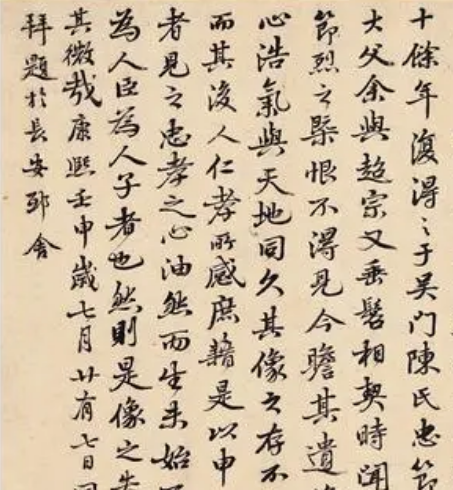 十餘年復得之于吳門陳氏忠節
大父余與超宗又垂髫相契時聞
節烈之槩恨不得見今瞻其遺
心浩氣與天地同久其像之存不
而其後人仁孝所感庶藉是以申
者見之忠孝之心油然而生未始
為人臣為人子者也然則是像之
其微哉康熙壬申歲七月廿有七日
拜題於長安邸舍